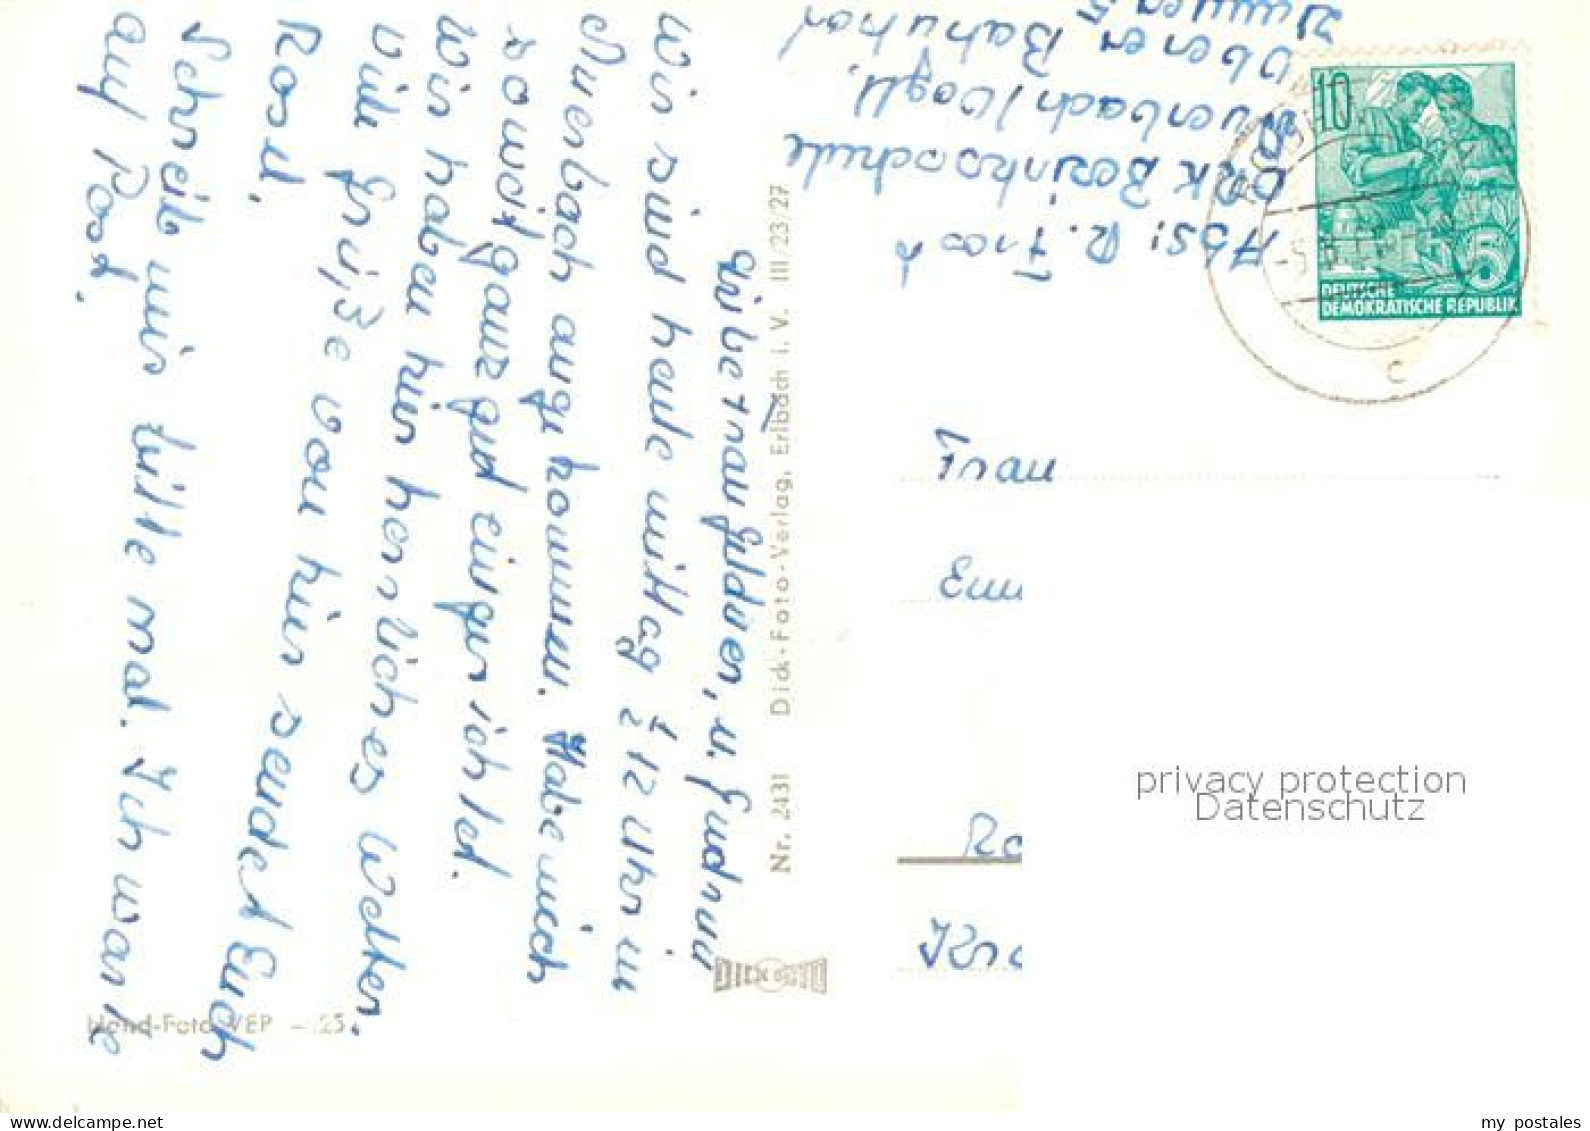 Liebe Frau Geldner, u. Gudrun
Wir sind heute mittag ½ 12 Uhr in
Auerbach angekommen. Habe mich
soweit ganz gut eingerichtet.
Wir haben hier herrliches Wetter.
Viele Grüße von hier sendet Euch
Rosel.
Schreib mir bitte mal. Ich warte
auf Post.
Hand-Foto VEP -.25
Nr. 2431 Dick-Foto-Verlag, Erlbach i. V. III/23/27
DICK FOTO
Abs: R. Frost
DRK Bezirksschule
Auerbach/Vogtl.
Oberer Bahnhof
10
5
DEUTSCHE
DEMOKRATISCHE REPUBLIK
c
Frau
Emm
Ro
Kra
privacy protection
Datenschutz
my postales